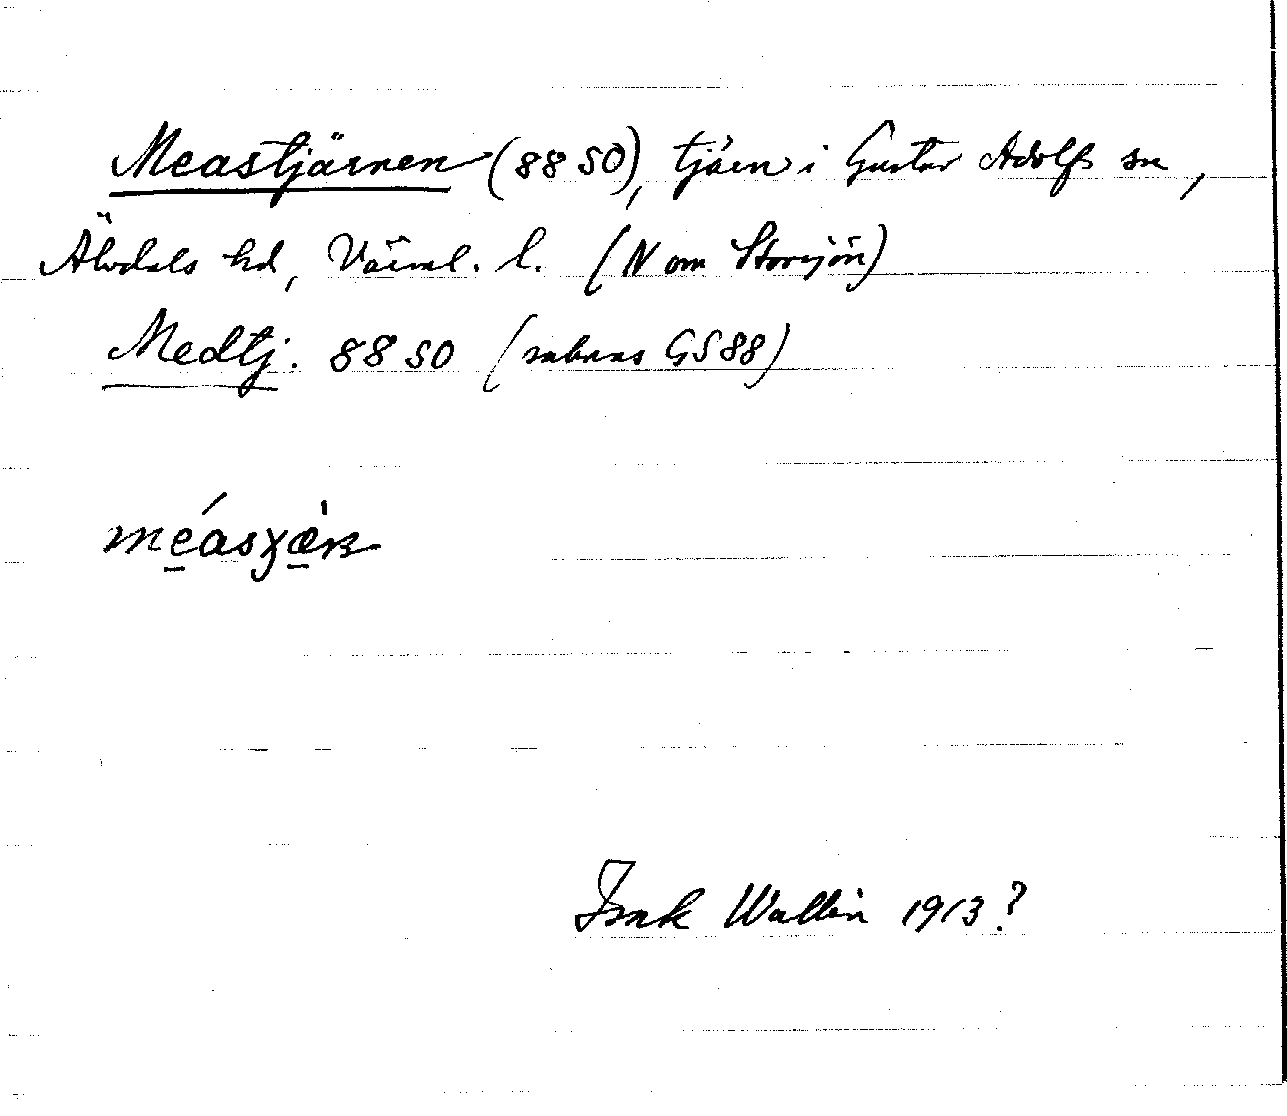 Meastjärnen (88 SO), tjärn i Gustav Adolfs sn,
Älvdals hd, Värml. l. (N om Storsjön)
Medtj. 88 SO (saknas GS88)
méasɣæ̀n
Isak Wallin 1913?